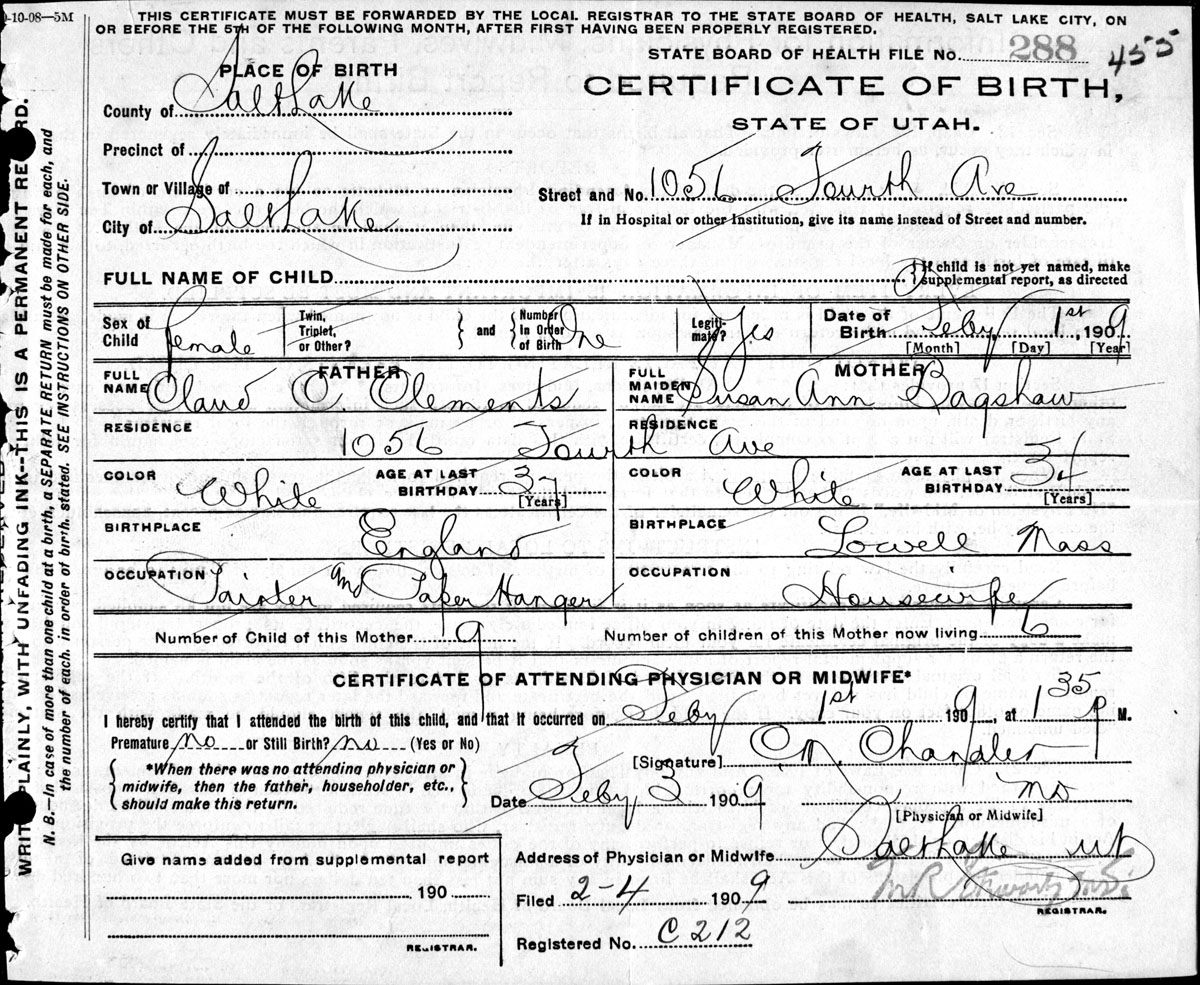 9-10-08—5M
THIS CERTIFICATE MUST BE FORWARDED BY THE LOCAL REGISTRAR TO THE STATE BOARD OF HEALTH, SALT LAKE CITY, ON
OR BEFORE THE 5TH OF THE FOLLOWING MONTH, AFTER FIRST HAVING BEEN PROPERLY REGISTERED.
STATE BOARD OF HEALTH FILE No. 288 455
PLACE OF BIRTH
CERTIFICATE OF BIRTH,
STATE OF UTAH.
County of Salt Lake
Precinct of
Town or Village of
Street and No. 1056 Fourth Ave
City of Salt Lake
If in Hospital or other Institution, give its name instead of Street and number.
FULL NAME OF CHILD
{ If child is not yet named, make
supplemental report, as directed
Sex of Child female
Twin, Triplet, or Other? } and { Number in Order of Birth One
Legiti-mate? Yes
Date of Birth Feby 1st, 1909
[Month] [Day] [Year]
FATHER
FULL NAME Claud C Clements
MOTHER
FULL MAIDEN NAME Susan Ann Bagshaw
RESIDENCE RESIDENCE
1056 Fourth Ave
COLOR White AGE AT LAST BIRTHDAY 37 [Years]
COLOR White AGE AT LAST BIRTHDAY 34 [Years]
BIRTHPLACE England
BIRTHPLACE Lowell Mass
OCCUPATION Painter and Paper Hanger
OCCUPATION Housewife
Number of Child of this Mother 9
Number of children of this Mother now living 6
CERTIFICATE OF ATTENDING PHYSICIAN OR MIDWIFE*
I hereby certify that I attended the birth of this child, and that it occurred on Feby 1st 1909, at 1 35 P M.
Premature no or Still Birth? no (Yes or No)
[Signature] C M Chandler
{ *When there was no attending physician or
midwife, then the father, householder, etc.,
should make this return. }
Date Feby 3 1909
MD
[Physician or Midwife]
Give name added from supplemental report
Address of Physician or Midwife Salt Lake Ut
190
Filed 2-4 1909
REGISTRAR.
REGISTRAR.
Registered No. C 212
WRITE PLAINLY, WITH UNFADING INK—THIS IS A PERMANENT RECORD.
N. B.—In case of more than one child at a birth, a SEPARATE RETURN must be made for each, and
the number of each, in order of birth, stated. SEE INSTRUCTIONS ON OTHER SIDE.